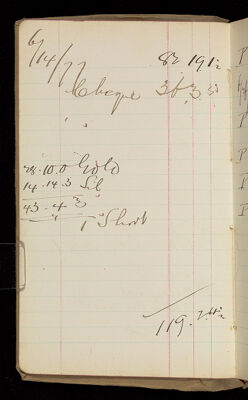 6/14/77
82 19 1½
Cheque 36 3 3
" "
28.10.0 Gold
14.14.3 Sil
43.4.3
" 1" Short
119.2.4½